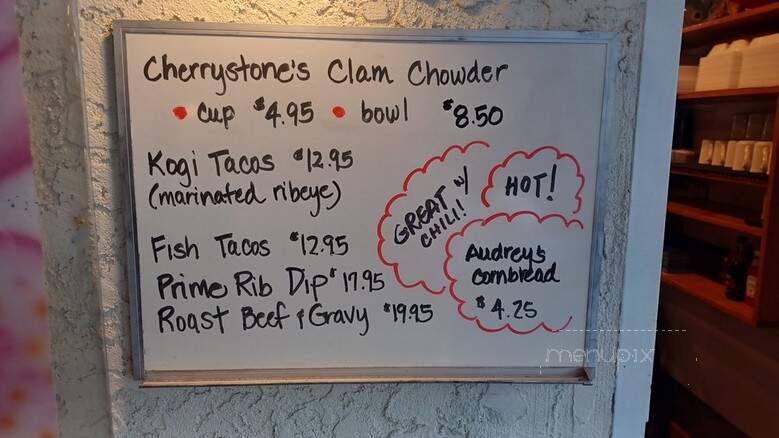 Cherrystone's Clam Chowder
• cup $4.95 • bowl $8.50
Kogi Tacos $12.95
(marinated ribeye)
Fish Tacos $12.95
Prime Rib Dip $17.95
Roast Beef & Gravy $19.95
GREAT W/
CHILI!
HOT!
Audrey's
cornbread
$4.25
menupix